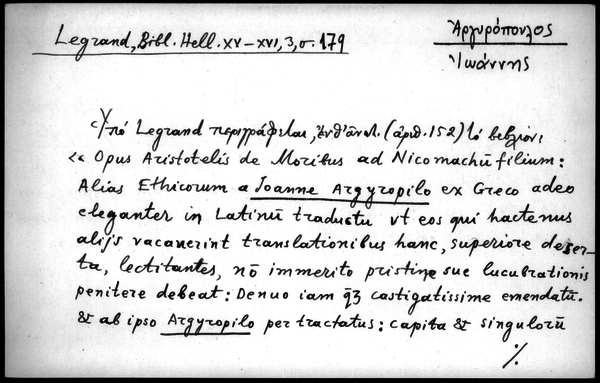 Legrand, Bibl. Hell. XV–XVI, 3, σ. 179
Ἀργυρόπουλος
Ἰωάννης
Ὑπό Legrand περιγράφεται, ἐνθ' ἀνωτ. (ἀριθ. 152) τό βιβλίον:
« Opus Aristotelis de Moribus ad Nicomachū filium:
Alias Ethicorum a Joanne Argyropilo ex Greco adeo
eleganter in Latinū traductū vt eos qui hactenus
alijs vacauerint translationibus hanc, superiore deser–
ta, lectitantes, nō immerito pristine sue lucubrationis
penitere debeat: Denuo iam q̄3 castigatissime emendatū.
& ab ipso Argyropilo per tractatus: capita & singulorū
./.